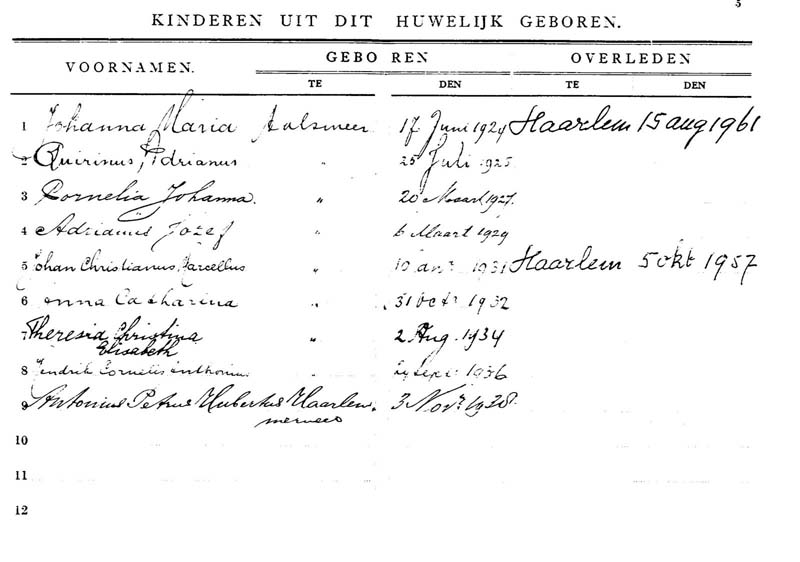 5
KINDEREN UIT DIT HUWELIJK GEBOREN.
VOORNAMEN. GEBOREN OVERLEDEN
TE DEN TE DEN
1 Johanna Maria Aalsmeer 17 Juni 1924 Haarlem 15 aug 1961
2 Quirinus, Adrianus " 25 Juli 1925
3 Cornelia Johanna. " 20 Maart 1927.
4 Adrianus Jozef " 6 Maart 1929
5 Johan Christianus, Marcellus " 10 1931 Haarlem 5 okt 1957
6 Anna Catharina " 31 Octr 1932
7 Theresia Christina " 2 Aug. 1934
Elisabeth
8 Hendrik Cornelis Anthonius " Sept 1936
9 Antonius Petrus Hubertus Haarlem. 3 Novr 1938
10
11
12